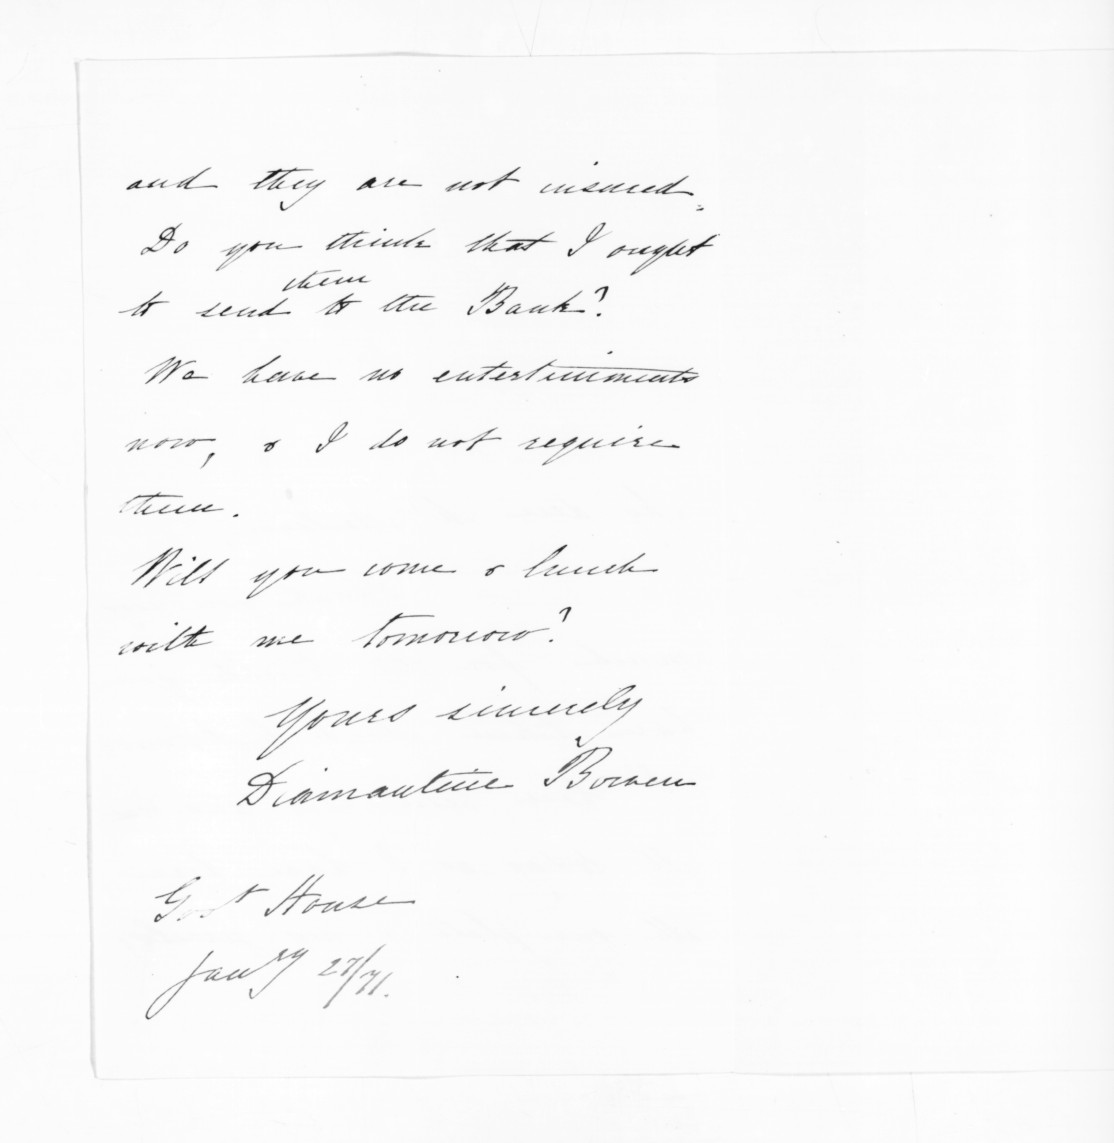 and they are not insured.
Do you think that I ought
them
to send to the Bank?
We have no entertainments
now, & I do not require
them.
Will you come & lunch
with me tomorrow?
Yours sincerely
Diamantine Bowen
Govt House
Janry 27/71.